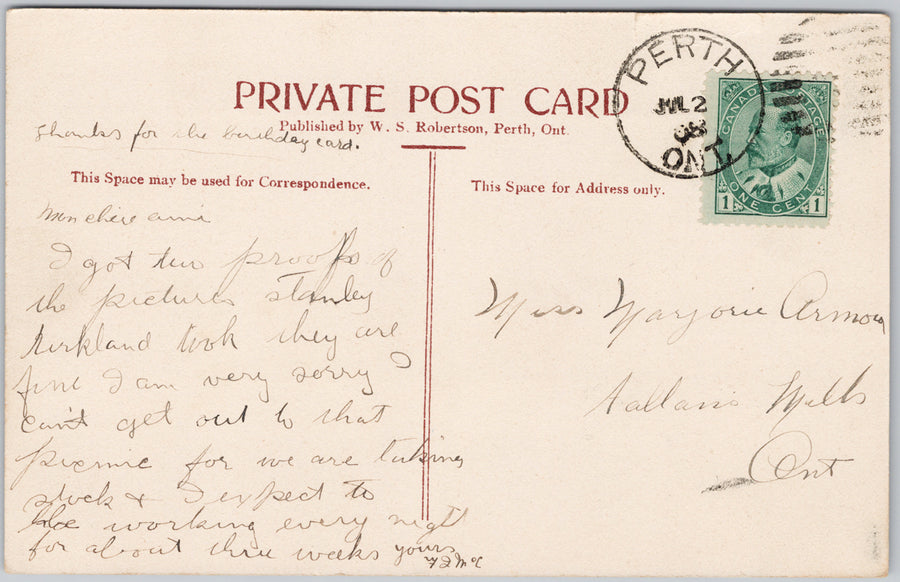 PRIVATE POST CARD
Published by W. S. Robertson, Perth, Ont.
Thanks for the birthday card.
This Space may be used for Correspondence.
Mon chere amie
I got two proofs of
the pictures stanley
Kirkland took they are
fine I am very sorry I
can't get out to that
picnic for we are taking
stock & I expect to
be working every night
for about three weeks yours
This Space for Address only.
Miss Marjorie Armour
Allans Mills
Ont
PERTH
JUL 2
08
ONT
CANADA POSTAGE
1 ONE CENT 1